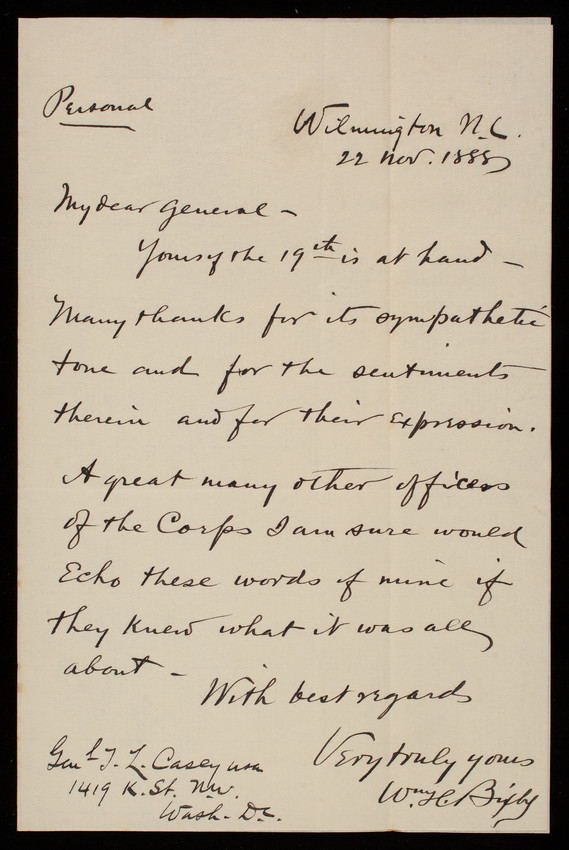 Personal
Wilmington N.C.
22 Nov. 1888
My dear General -
Yours of the 19th is at hand -
Many thanks for its sympathetic
tone and for the sentiments
therein and for their expression.
A great many other officers
of the Corps I am sure would
Echo these words of mine if
they knew what it was all
about -
With best regards
Very truly yours
Wm H. Bixby
Genl T. L. Casey USA
1419 K. St. N.W.
Wash. D.C.